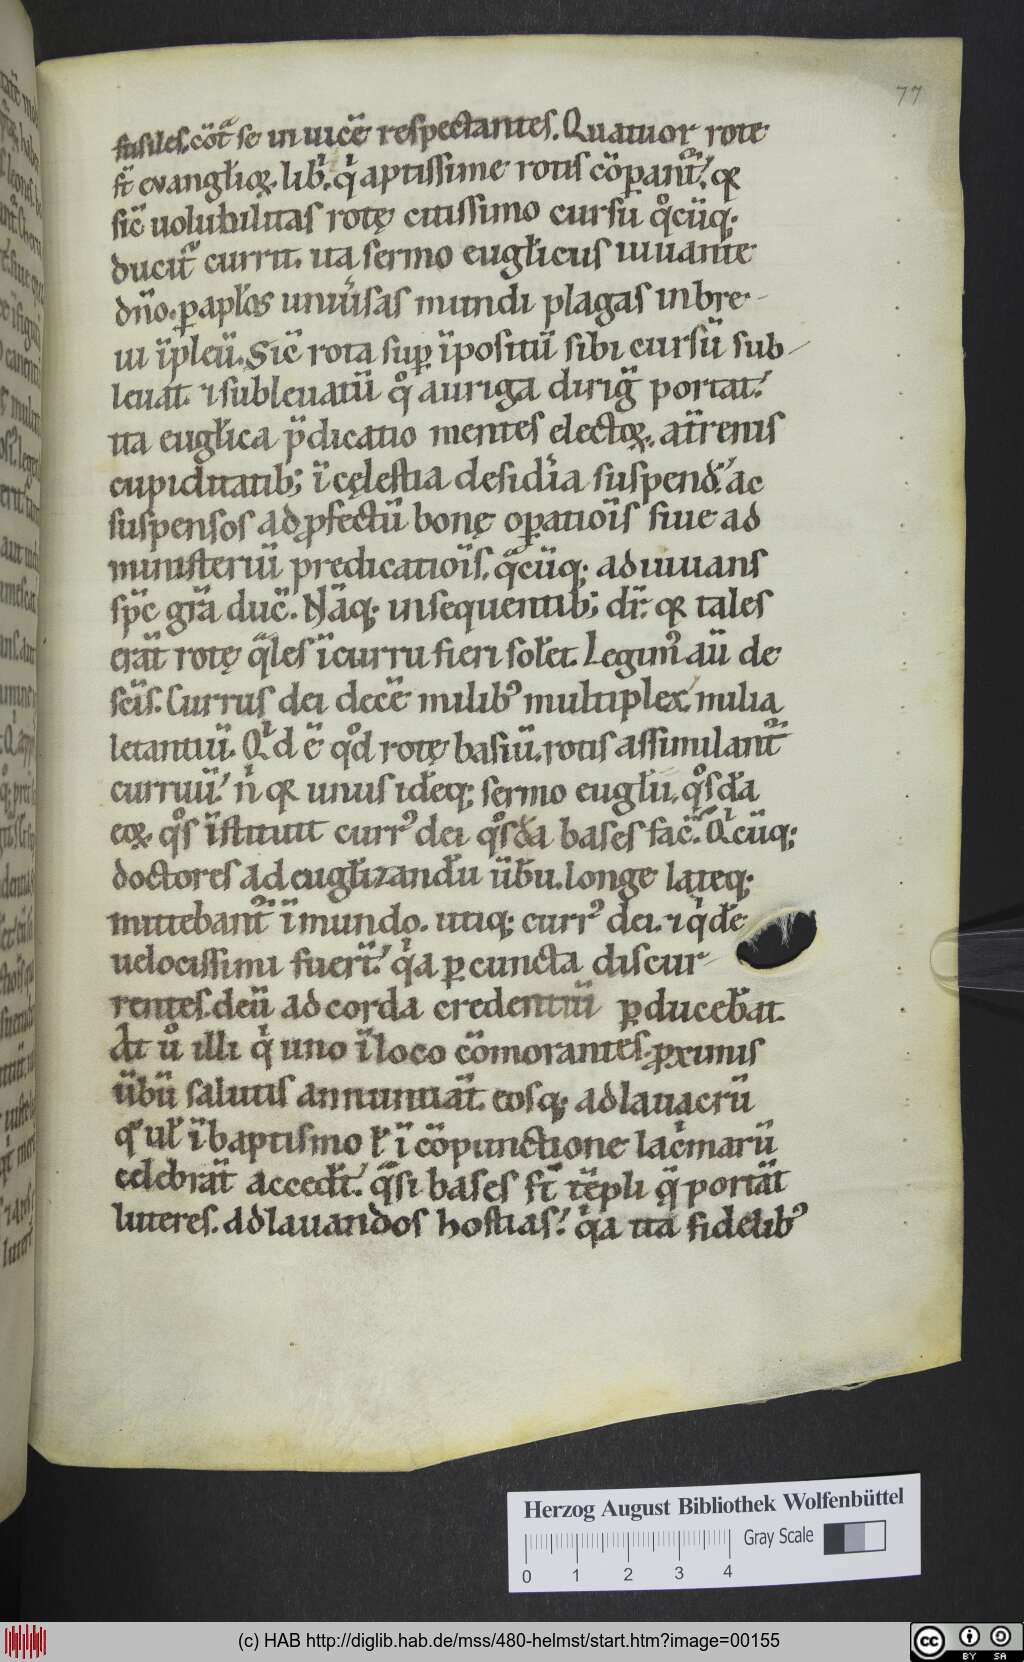 77
fusiles. cōt̄ se in uicē respectantes. Quatuor rote
st̄ evangłioꝝ. libͥ. qͥ aptissime rotis cōꝑant̄ᷣ. qꝛ
sic̄ uolubilitas rotę citissimo cursū qͦcūq;
ducit̄ᷣ currit. ita sermo eugłicus iuuante
dn̄o. ꝑ apłos uniūsas mundi plagas in bre-
ui īpleū. Sic̄ rota suꝑ īpositū sibi cursū sub-
leuat. ⁊ subleuatū qͦ auriga diriḡ portat.
ita eugłica p̄dicatio mentes electoꝝ. a t̄renis
cupiditatib; ī cęlestia desidͥia suspend̄. ac
suspensos ad ꝓfectū bonę oꝑatiōis siue ad
ministeriū predicatiōis. qͣcūq; adiuuans
sp̄c gr̄a duc̄. Nāq; in sequentib; dr̄. qꝛ tales
erāt rotę qͣles ī curru fieri solet̄. Legimꝰ aū de
sc̄is. Currus dei decē milibꝰ multiplex milia
letantiū. Qͥd ē qd̄ rotę basiū. rotis assimulant̄ᷣ
curruū. n̄ qꝛ unus idēq; sermo eugłii. qͦsdā
eoꝝ. qͦs īstituit currꝰ dei qͦsdā bases fac̄. Qͥcūq;
doctores ad eugłizandū ūbū. longe lateq;
mittebant̄ᷣ ī mundo. utiq; currꝰ dei. ⁊ qͥdē
uelocissimi fuer̄t. qͥa ꝑ cuncta discur-
rentes. deū ad corda credentiū ꝑducebāt.
At ūͦ illi qͥ uno ī loco cōmorantes. ꝓximis
ūbū salutis annuntiāt. eosq; ad lauacrū
qͦ ul̄ ī baptismo ł ī cōpunctione lacͥmarū
celebrāt accedēt. qͣsi bases st̄ tēpli qͣ portāt
luteres. ad lauandos hostias. qͥa ita fidelibꝰ
Herzog August Bibliothek Wolfenbüttel
Gray Scale
0 1 2 3 4
(c) HAB http://diglib.hab.de/mss/480-helmst/start.htm?image=00155
cc BY SA